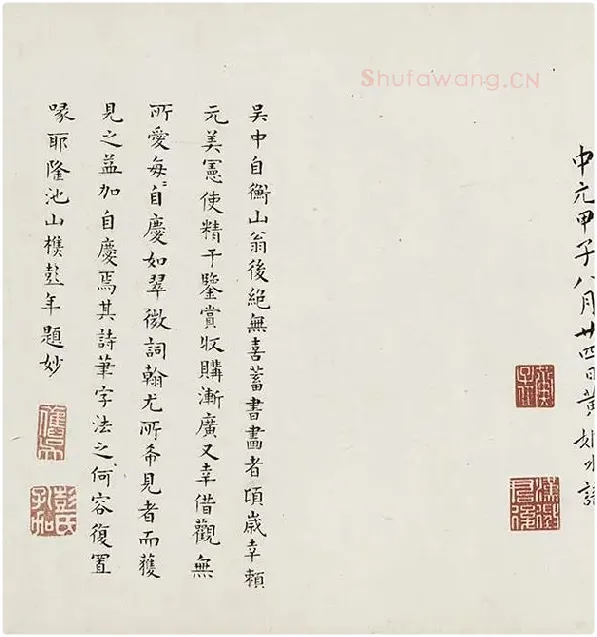 Shufawang.CN
中元甲子八月廿四日黃姬水識
吳中自衡山翁後絕無喜蓄書畫者頃歲幸賴
元美憲使精于鑒賞收購漸廣又幸借觀無
所愛每〻自慶如翠微詞翰尤所希見者而獲
見之益加自慶焉其詩筆字法之何容復置
喙耶隆池山樵彭年題妙
彭氏孔加